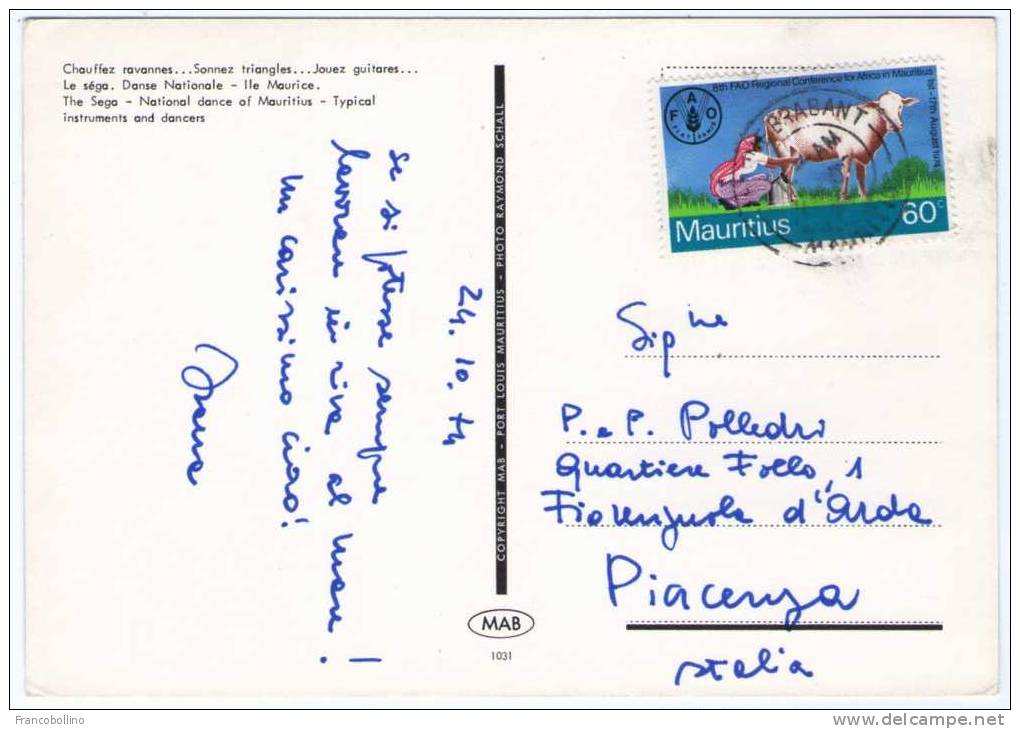 Chauffez ravannes...Sonnez triangles...Jouez guitares...
Le séga. Danse Nationale - Ile Maurice.
The Sega - National dance of Mauritius - Typical
instruments and dancers
24.10.74
se si potesse sempre
lavorare in riva al mare!
Un carissimo ciao!
COPYRIGHT MAB - PORT LOUIS MAURITIUS - PHOTO RAYMOND SCHALL
MAB
1031
8th FAO Regional Conference for Africa in Mauritius
1st-17th August 1974
FAO
FIAT PANIS
BRABANT
AM
Mauritius 60c
Sig.ne
P. e P. Polledri
Quartiere Follo, 1
Fiorenzuola d'Arda
Piacenza
Italia
Francobollino
www.delcampe.net